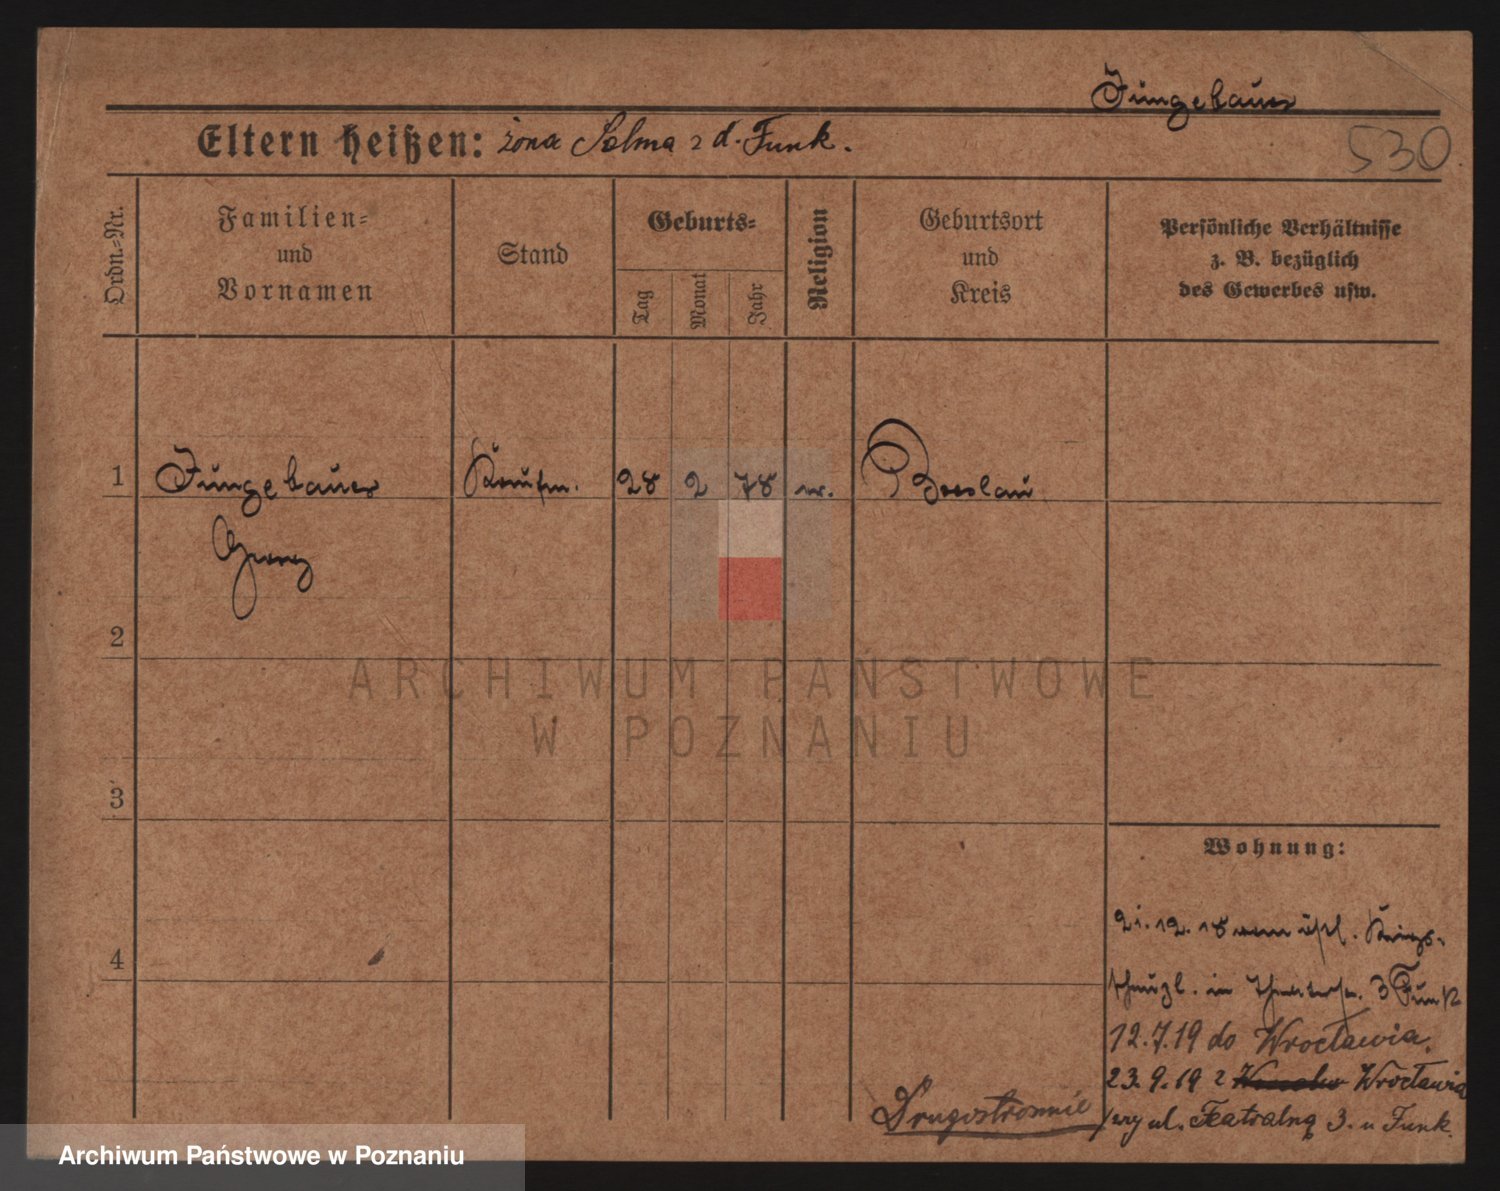 Jungebauer
530
Eltern heißen: żona Selma z d. Funk.
Ordn.=Nr.
Familien=
und
Vornamen
Stand
Geburts=
Tag
Monat
Jahr
Religion
Geburtsort
und
Kreis
Persönliche Verhältnisse
z. B. bezüglich
des Gewerbes usw.
1
Jungebauer
Kaufm.
28
2
78
Breslau
Georg
2
ARCHIWUM PAŃSTWOWE
W POZNANIU
3
Wohnung:
4
21.12.18 vom
in 3 Funk
12.7.19 do Wrocławia.
23.9.19 z Wrocławia
ul. Teatralną 3. u Funk.
Drugostronnie
Archiwum Państwowe w Poznaniu